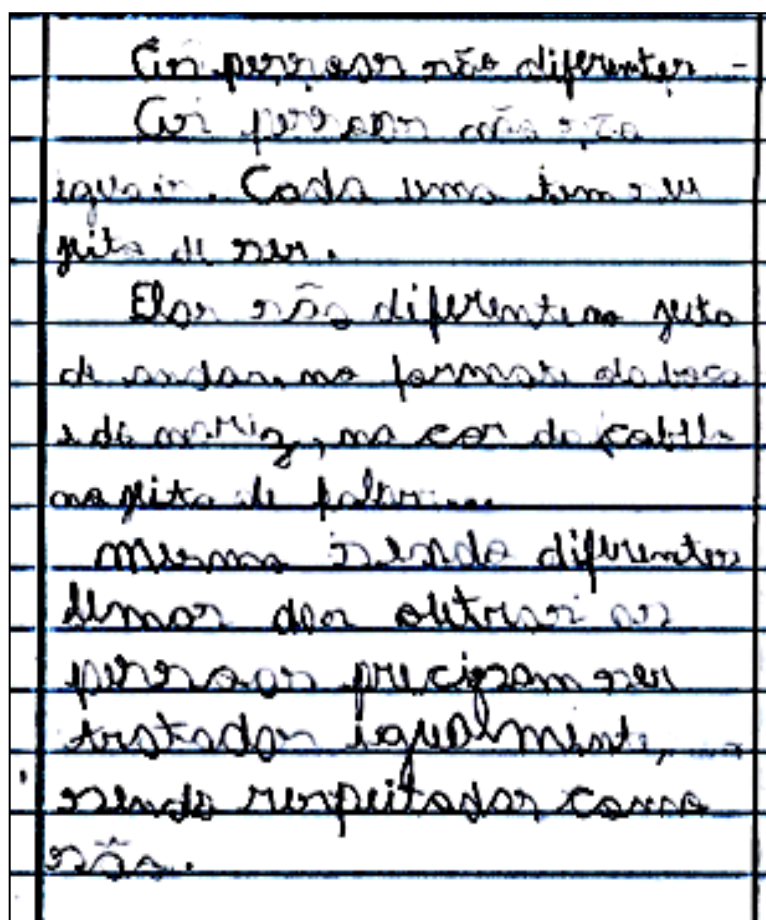 As pessoas são diferentes
As pessoas não são
iguais. Cada uma tem seu
jeito de ser.
Elas são diferente no jeito
de andar, no formato da boca
e do nariz, na cor do cabelo
no jeito de falar...
mesmo sendo diferentes
umas das outras as
pessoas precisam ser
tratadas igualmente,
sendo respeitadas como
são.